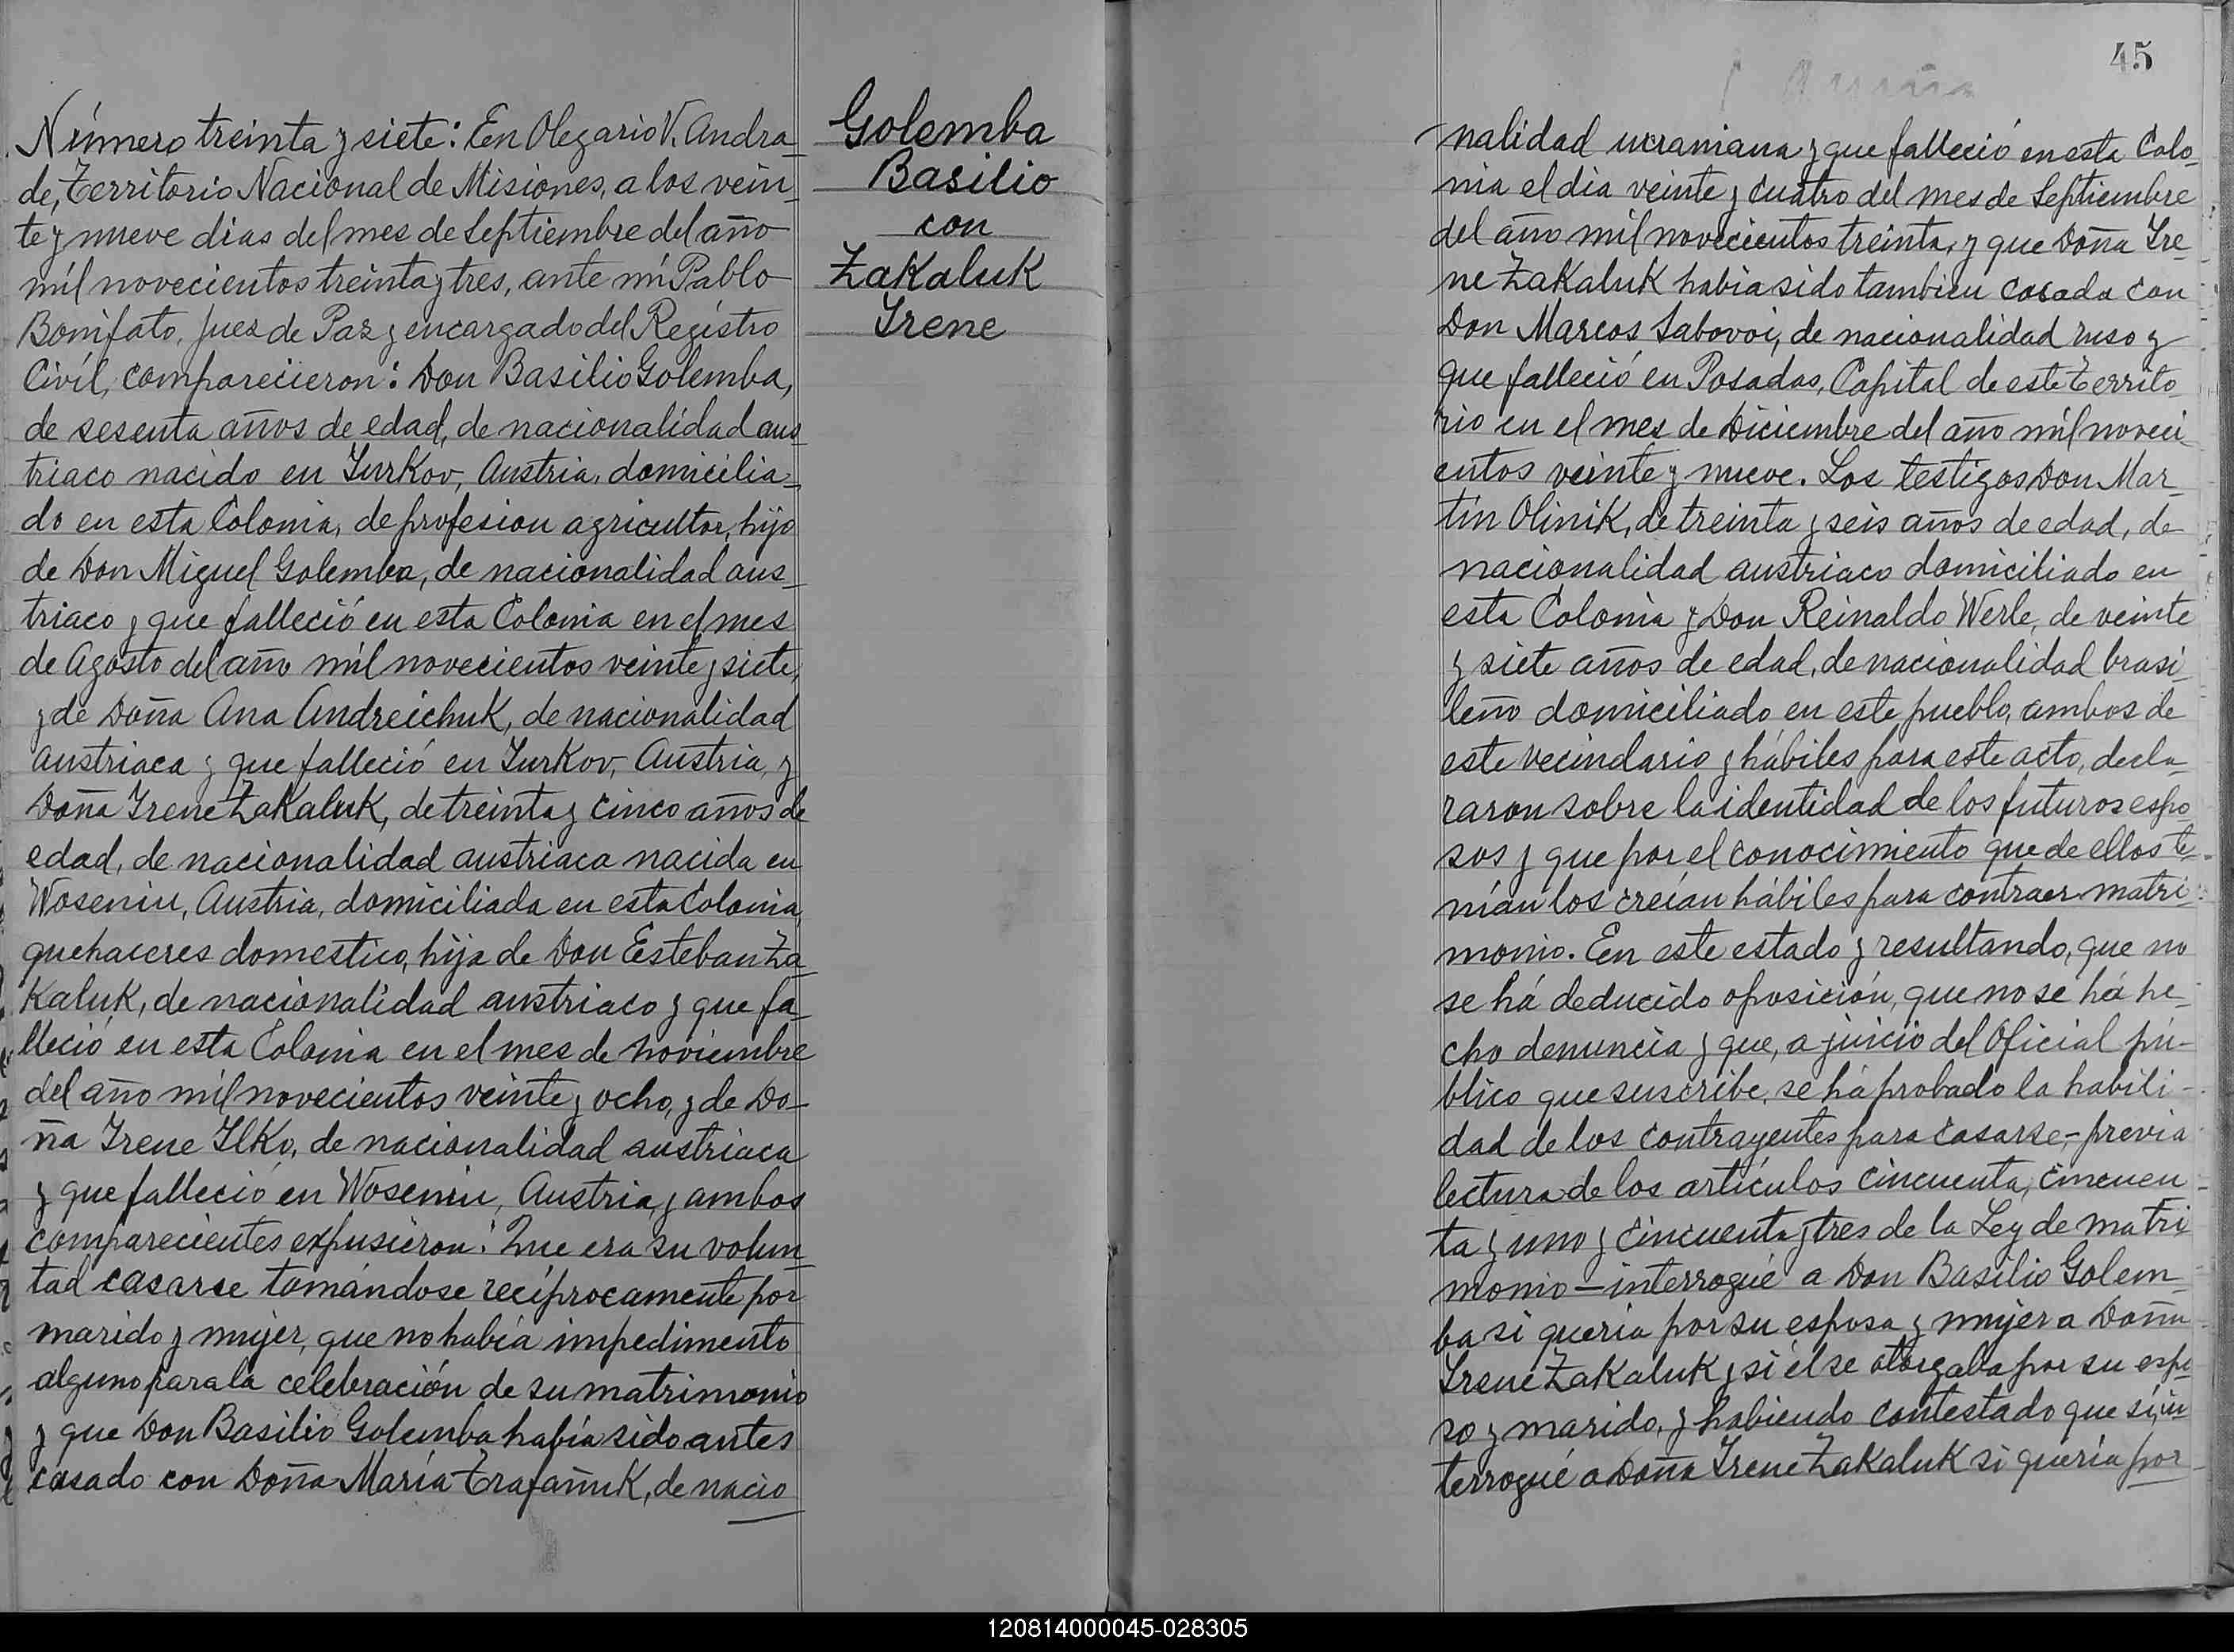 Número treinta y siete: En Olegario V. Andra-
de, Territorio Nacional de Misiones, a los vein-
te y nueve dias del mes de Septiembre del año
mil novecientos treinta y tres, ante mí Pablo
Bonifato, Juez de Paz y encargado del Registro
Civil, comparecieron: Don Basilio Golemba,
de sesenta años de edad, de nacionalidad aus-
triaco nacido en Yurkov, Austria, domicilia-
do en esta Colonia, de profesion agricultor, hijo
de Don Miguel Golemba, de nacionalidad aus-
triaco y que falleció en esta Colonia en el mes
de Agosto del año mil novecientos veinte y siete,
y de Doña Ana Andreichuk, de nacionalidad
austriaca y que falleció en Yurkov, Austria, y
Doña Irene Zakaluk, de treinta y cinco años de
edad, de nacionalidad austriaca nacida en
Wosenin, Austria, domiciliada en esta Colonia,
quehaceres domestico, hija de Don Esteban Za-
kaluk, de nacionalidad austriaco y que fa-
lleció en esta Colonia en el mes de noviembre
del año mil novecientos veinte y ocho, y de Do-
ña Irene Ilko, de nacionalidad austriaca
y que falleció en Wosenin, Austria, y ambos
comparecientes expusieron: Que era su volun-
tad casarse tomándose recíprocamente por
marido y mujer, que no había impedimento
alguno para la celebración de su matrimonio
y que Don Basilio Golemba había sido antes
casado con Doña María Trafañuk, de nacio
Golemba
Basilio
con
Zakaluk
Irene
45
nalidad ucraniana y que falleció en esta Colo-
nia el dia veinte y cuatro del mes de Septiembre
del año mil novecientos treinta, y que Doña Ire-
ne Zakaluk habia sido tambien casada con
Don Marcos Sabovoi, de nacionalidad ruso y
que falleció en Posadas, Capital de este Territo-
rio en el mes de Diciembre del año mil noveci-
entos veinte y nueve. Los testigos Don Mar-
tín Olinik, de treinta y seis años de edad, de
nacionalidad austriaco domiciliado en
esta Colonia y Don Reinaldo Werle, de veinte
y siete años de edad, de nacionalidad brasi-
leño domiciliado en este pueblo, ambos de
este vecindario y hábiles para este acto, decla-
raron sobre la identidad de los futuros espo-
sos y que por el conocimiento que de ellos te-
nían los creían hábiles para contraer matri-
monio. En este estado y resultando, que no
se há deducido oposición, que no se há he-
cho denuncia y que, a juicio del Oficial pú-
blico que suscribe, se há probado la habili-
dad de los contrayentes para casarse,- previa
lectura de los artículos cincuenta, cincuen-
ta y uno y cincuenta y tres de la Ley de matri-
monio - interrogué a Don Basilio Golem-
ba si queria por su esposa y mujer a Doña
Irene Zakaluk y si él se otorgaba por su espo-
so y marido, y habiendo contestado que sí, in-
terrogué a Doña Irene Zakaluk si quería por
120814000045-028305